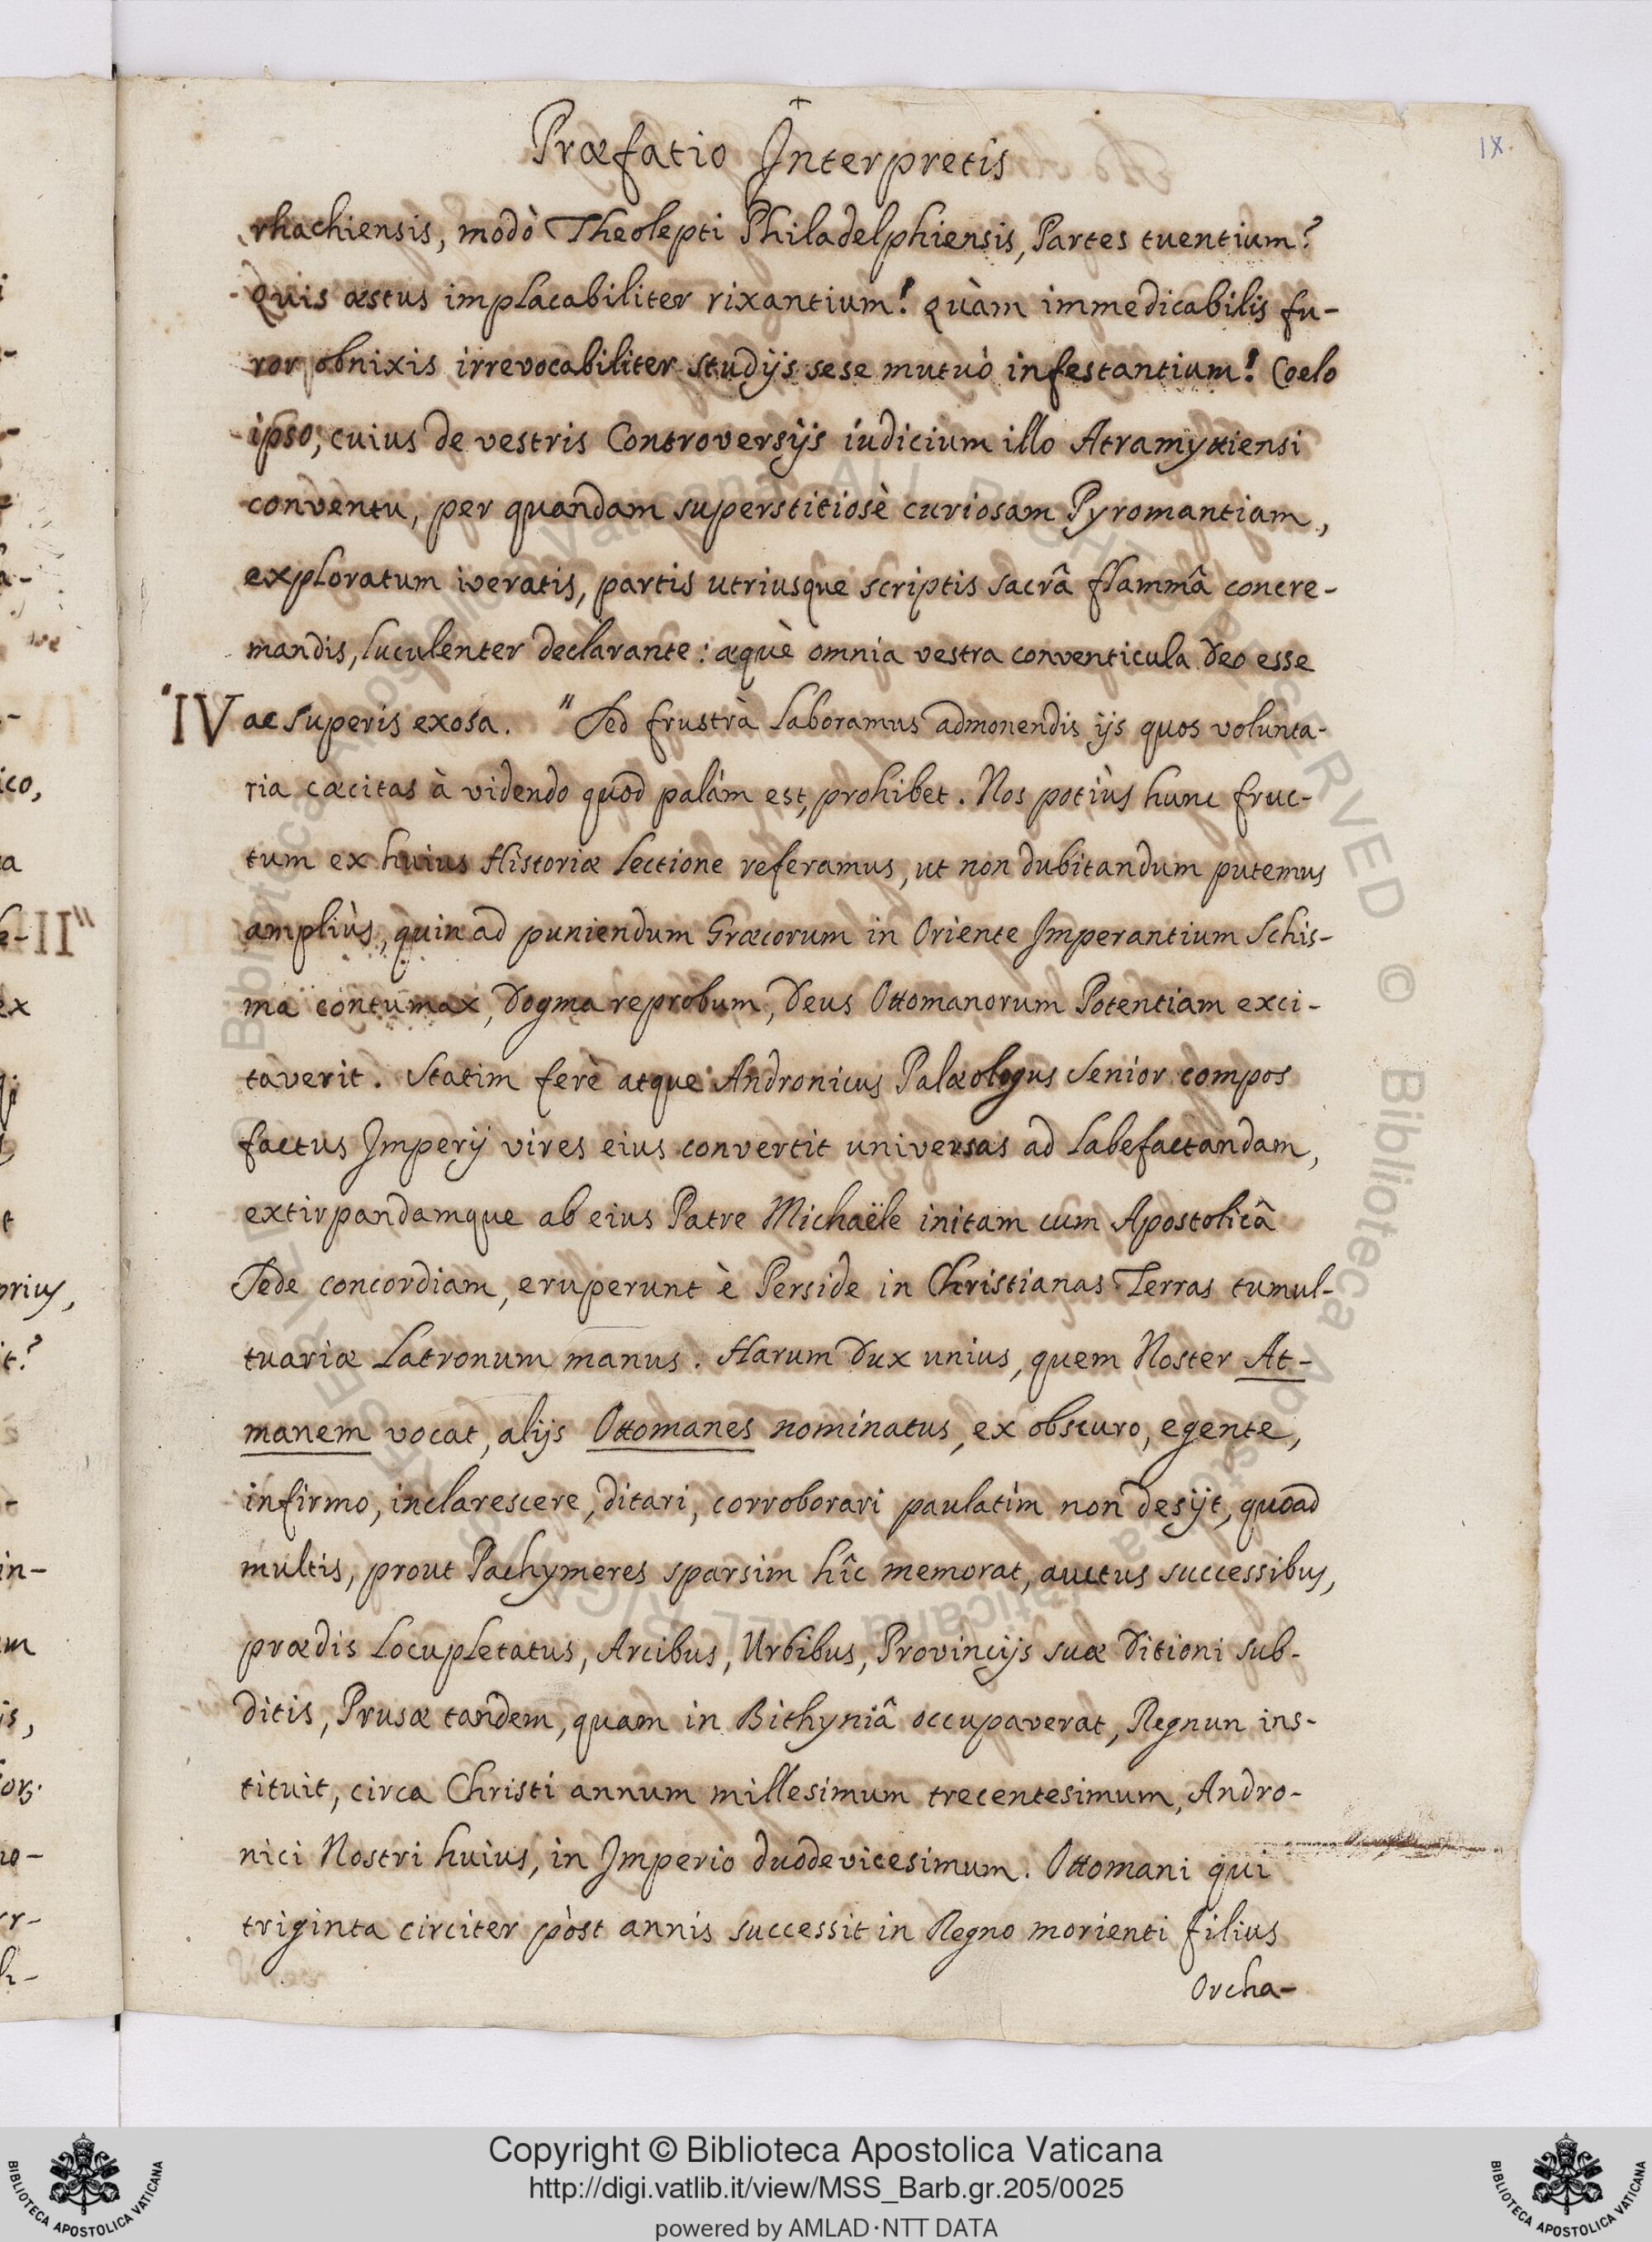 IX.
Præfatio Interpretis
rhachiensis, modò Theolepti Philadelphiensis, Partes tuentium?
Quis æstus implacabiliter rixantium! Quàm immedicabilis fu-
ror obnixis irrevocabiliter studijs sese mutuò infestantium! Coelo
ipso, cuius de vestris Controversijs iudicium illo Atramyttiensi
conventu, per quandam superstitiosè curiosam Pyromantiam,
exploratum iveratis, partis utriusque scriptis sacrâ flammâ concre-
mandis, luculenter declarante: æquè omnia vestra conventicula Deo esse
IV ac superis exosa. " Sed frustrà laboramus admonendis ijs quos volunta-
ria cæcitas à videndo quod palám est, prohibet. Nos potiùs hunc fruc-
tum ex huius Historiæ lectione referamus, ut non dubitandum putemus
ampliùs, quin ad puniendum Græcorum in Oriente Imperantium Schis-
ma contumax, Dogma reprobum, Deus Ottomanorum Potentiam exci-
taverit. Statim ferè atque Andronicus Palæologus Senior compos
factus Imperij vires eius convertit universas ad labefactandam,
extirpandamque ab eius Patre Michaële initam cum Apostolicâ
Sede concordiam, eruperunt è Perside in Christianas Terras tumul-
tuariæ Latronum manus. Harum Dux unius, quem Noster At-
manem vocat, alijs Ottomanes nominatus, ex obscuro, egente,
infirmo, inclarescere, ditari, corroborari paulatim non desijt, quoad
multis, prout Pachymeres sparsim hîc memorat, auctus successibus,
prædis locupletatus, Arcibus, Urbibus, Provincijs suæ Ditioni sub-
ditis, Prusæ tandem, quam in Bithyniâ occupaverat, Regnun ins-
tituit, circa Christi annum millesimum trecentesimum, Andro-
nici Nostri huius, in Imperio duodevicesimum. Ottomani qui
triginta circiter pòst annis successit in Regno morienti filius
Orcha-
Copyright © Biblioteca Apostolica Vaticana
http://digi.vatlib.it/view/MSS_Barb.gr.205/0025
powered by AMLAD·NTT DATA
BIBLIOTECA APOSTOLICA VATICANA
BIBLIOTECA APOSTOLICA VATICANA